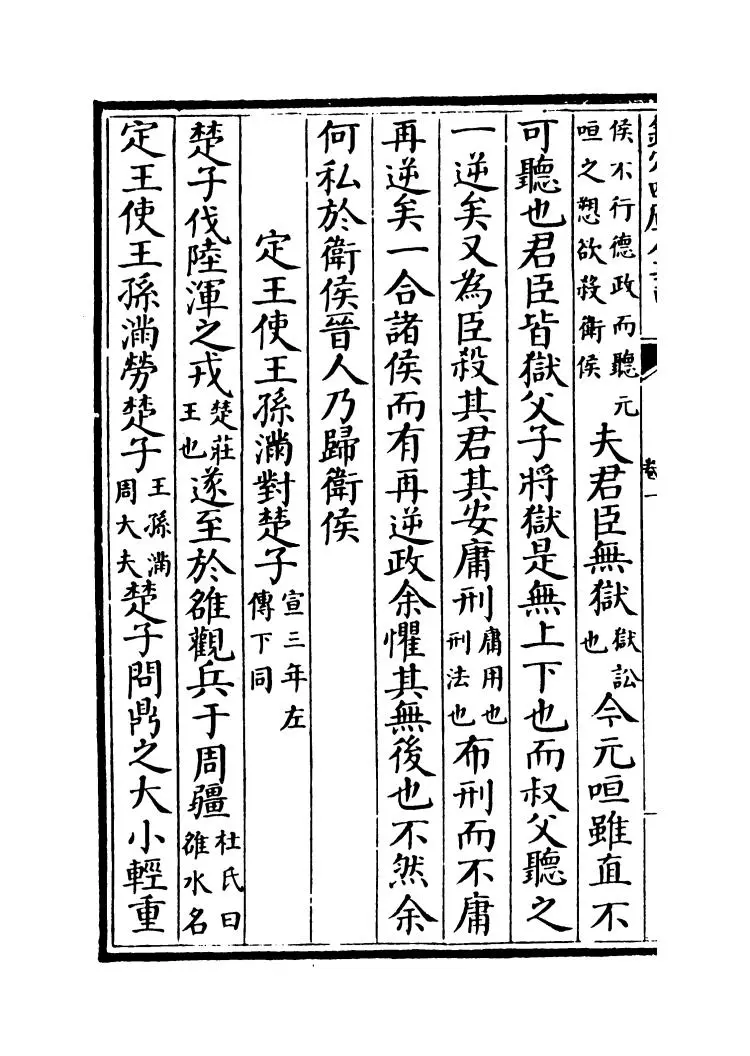 卷一
侯不行德政而聽元咺之愬欲殺衛侯夫君臣無獄獄訟也今元咺雖直不
可聽也君臣皆獄父子將獄是無上下也而叔父聽之
一逆矣又為臣殺其君其安庸刑庸用也刑法也布刑而不庸
再逆矣一合諸侯而有再逆政余懼其無後也不然余
何私於衛侯晉人乃歸衛侯
定王使王孫滿對楚子宣三年左傳下同
楚子伐陸渾之戎楚莊王也遂至於雒觀兵于周疆杜氏曰雒水名
定王使王孫滿勞楚子王孫滿周大夫楚子問鼎之大小輕重